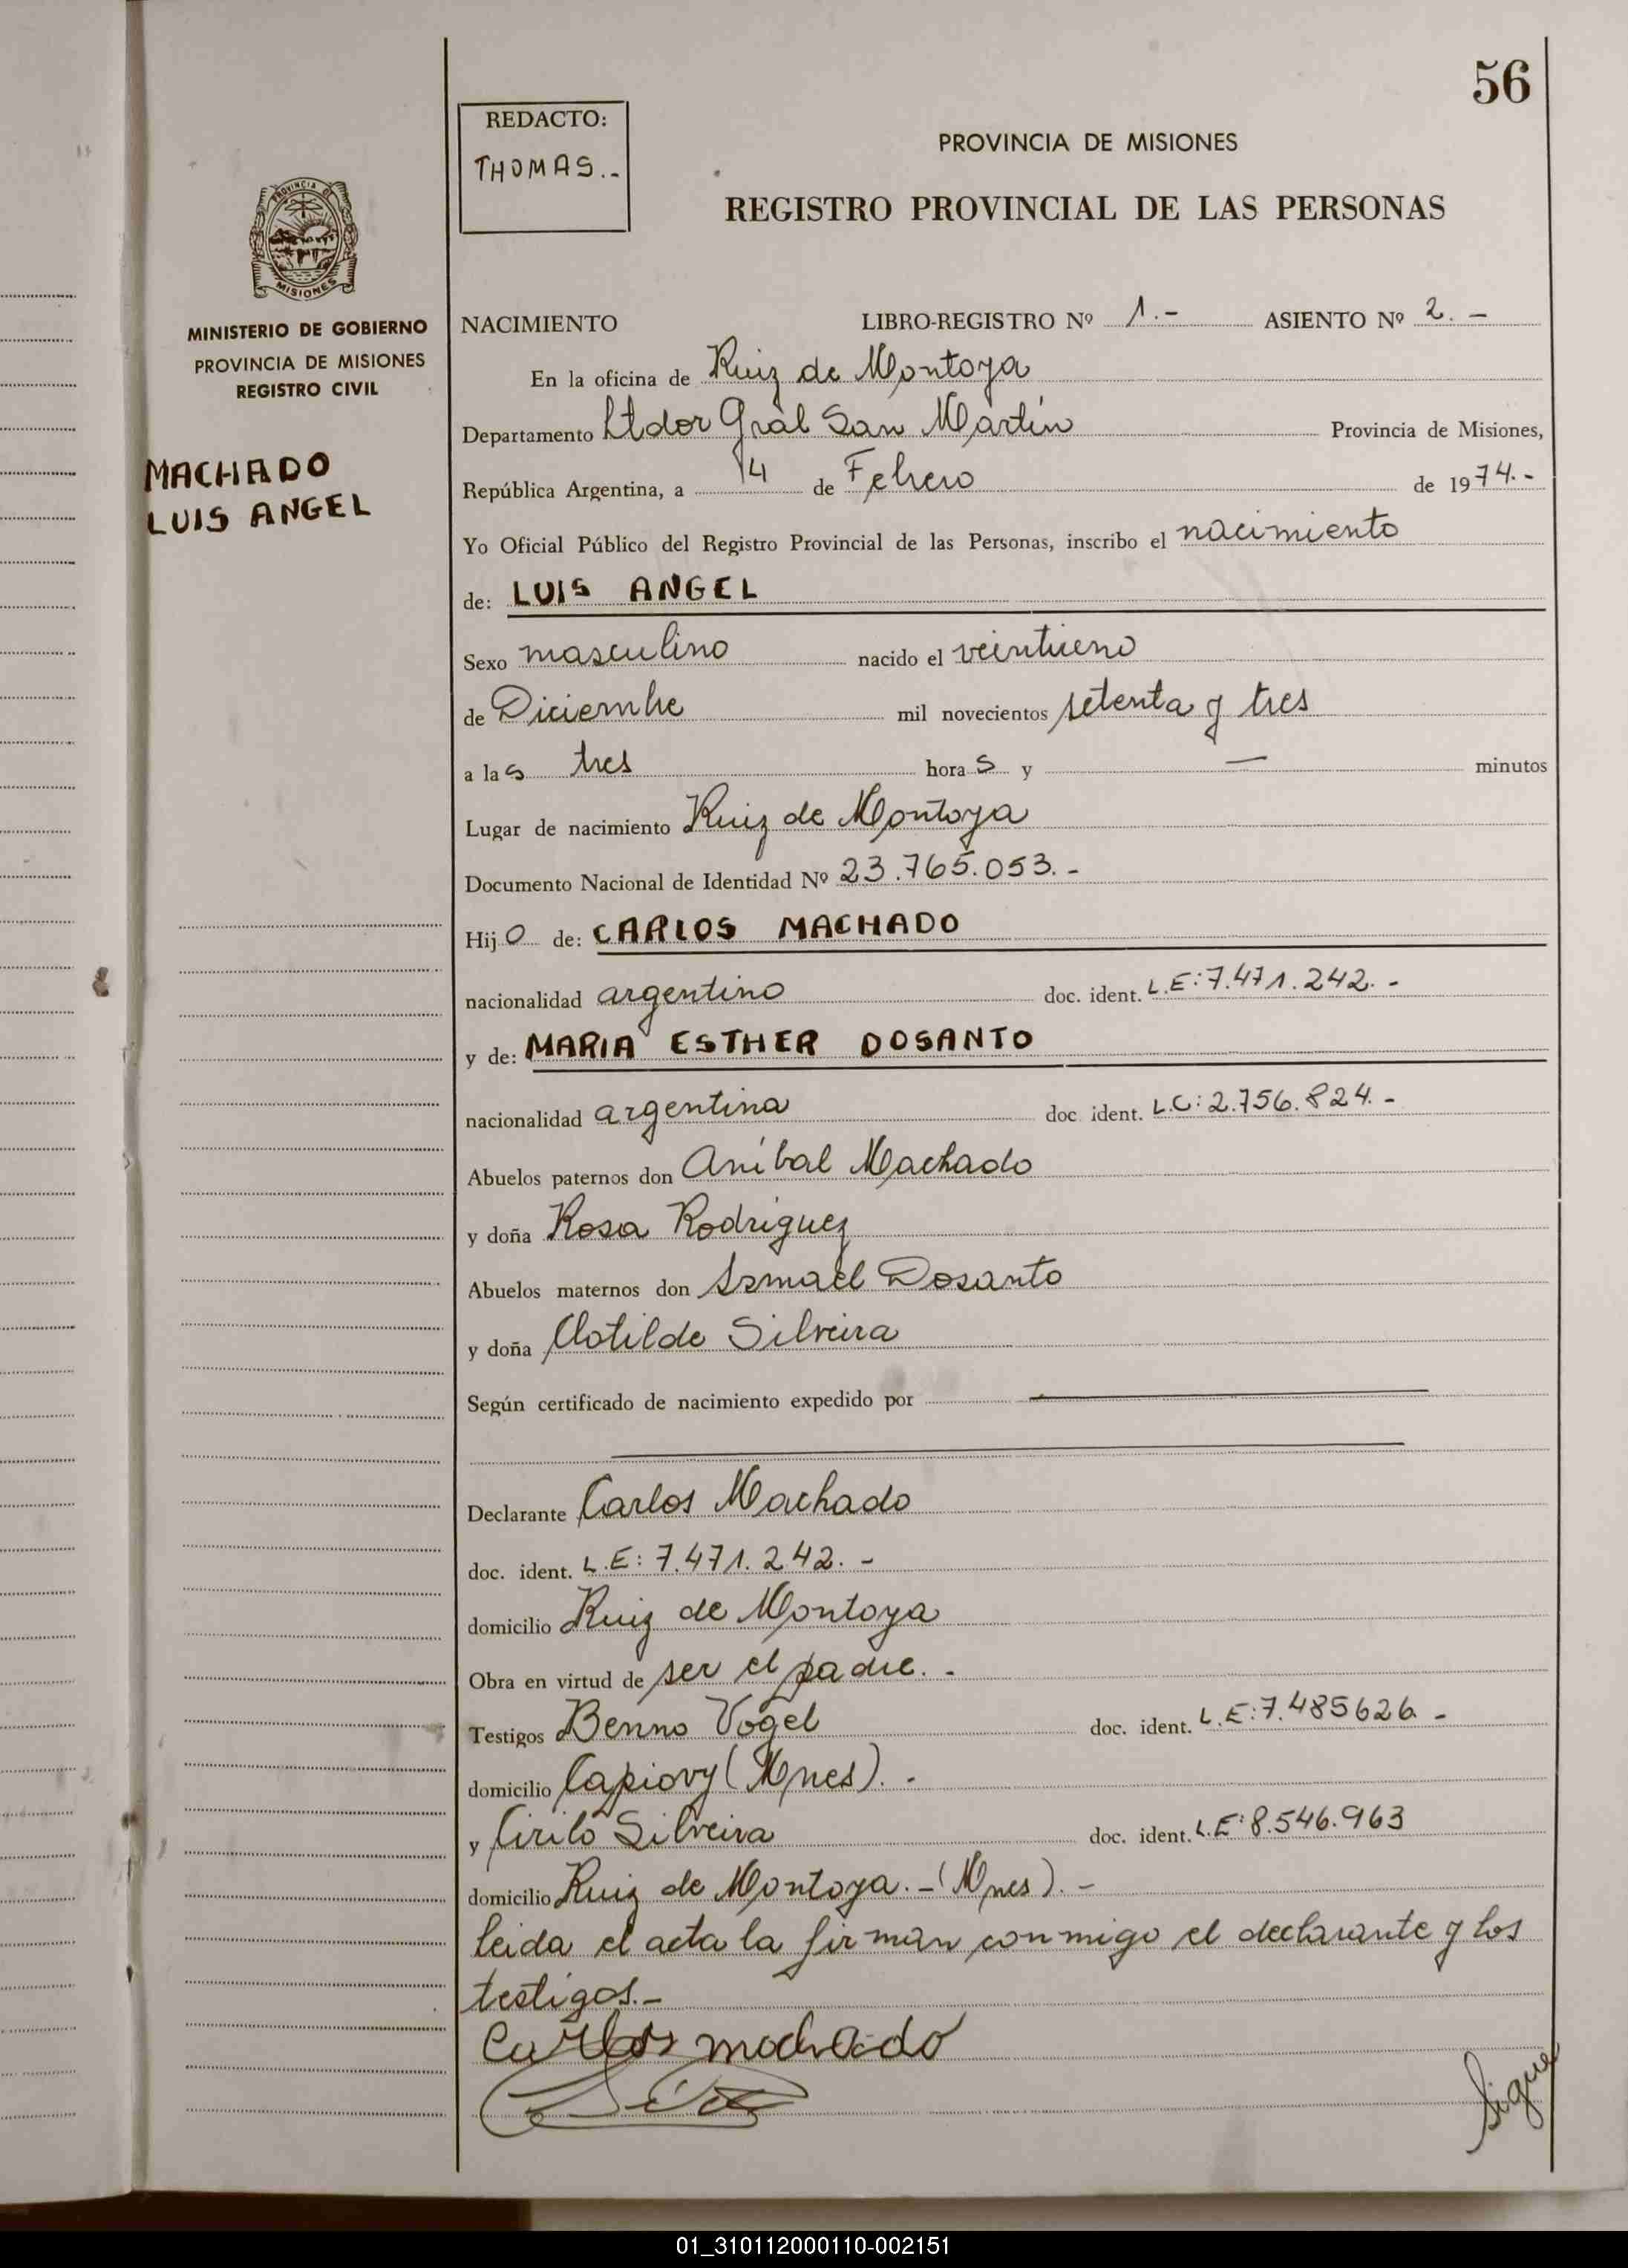 56
REDACTO:
THOMAS.-
PROVINCIA DE MISIONES
REGISTRO PROVINCIAL DE LAS PERSONAS
PROVINCIA DE
MISIONES
MINISTERIO DE GOBIERNO
PROVINCIA DE MISIONES
REGISTRO CIVIL
MACHADO
LUIS ANGEL
NACIMIENTO LIBRO-REGISTRO Nº 1.- ASIENTO Nº 2.-
En la oficina de Ruiz de Montoya
Departamento Ltdor Gral San Martín Provincia de Misiones,
República Argentina, a 14 de Febrero de 1974.-
Yo Oficial Público del Registro Provincial de las Personas, inscribo el nacimiento
de: LUIS ANGEL
Sexo masculino nacido el veintiuno
de Diciembre mil novecientos setenta y tres
a las tres horas y — minutos
Lugar de nacimiento Ruiz de Montoya
Documento Nacional de Identidad Nº 23.765.053.-
Hijo de: CARLOS MACHADO
nacionalidad argentino doc. ident. L.E:7.471.242.-
y de: MARIA ESTHER DOSANTO
nacionalidad argentina doc. ident. L.C:2.756.824.-
Abuelos paternos don Aníbal Machado
y doña Rosa Rodriguez
Abuelos maternos don Ismael Dosanto
y doña Clotilde Silveira
Según certificado de nacimiento expedido por
Declarante Carlos Machado
doc. ident. L.E: 7.471.242.-
domicilio Ruiz de Montoya
Obra en virtud de ser el padre.-
Testigos Benno Vogel doc. ident. L.E:7.485626-
domicilio Capiovy (Mnes).-
y Cirilo Silveira doc. ident. L.E:8.546.963
domicilio Ruiz de Montoya.-(Mnes).-
leida el acta la firman conmigo el declarante y los
testigos.-
Carlos machado
Sigue
01_310112000110-002151